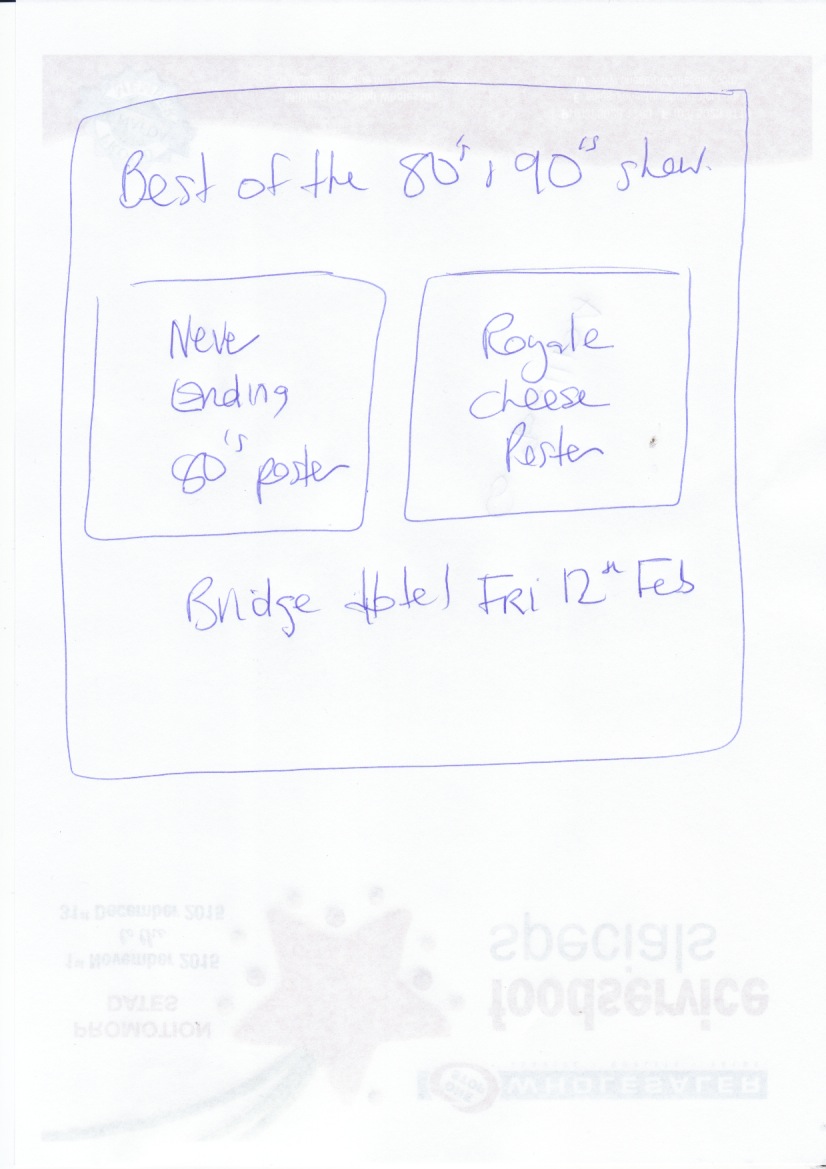 Best of the 80's, 90's show.
Neve
Ending
80's poster
Royale
Cheese
Poster
Bridge Hotel Fri 12th Feb
31st December 2015
to the
1st November 2015
DATES
PROMOTION
specials
foodservice
WHOLESALER